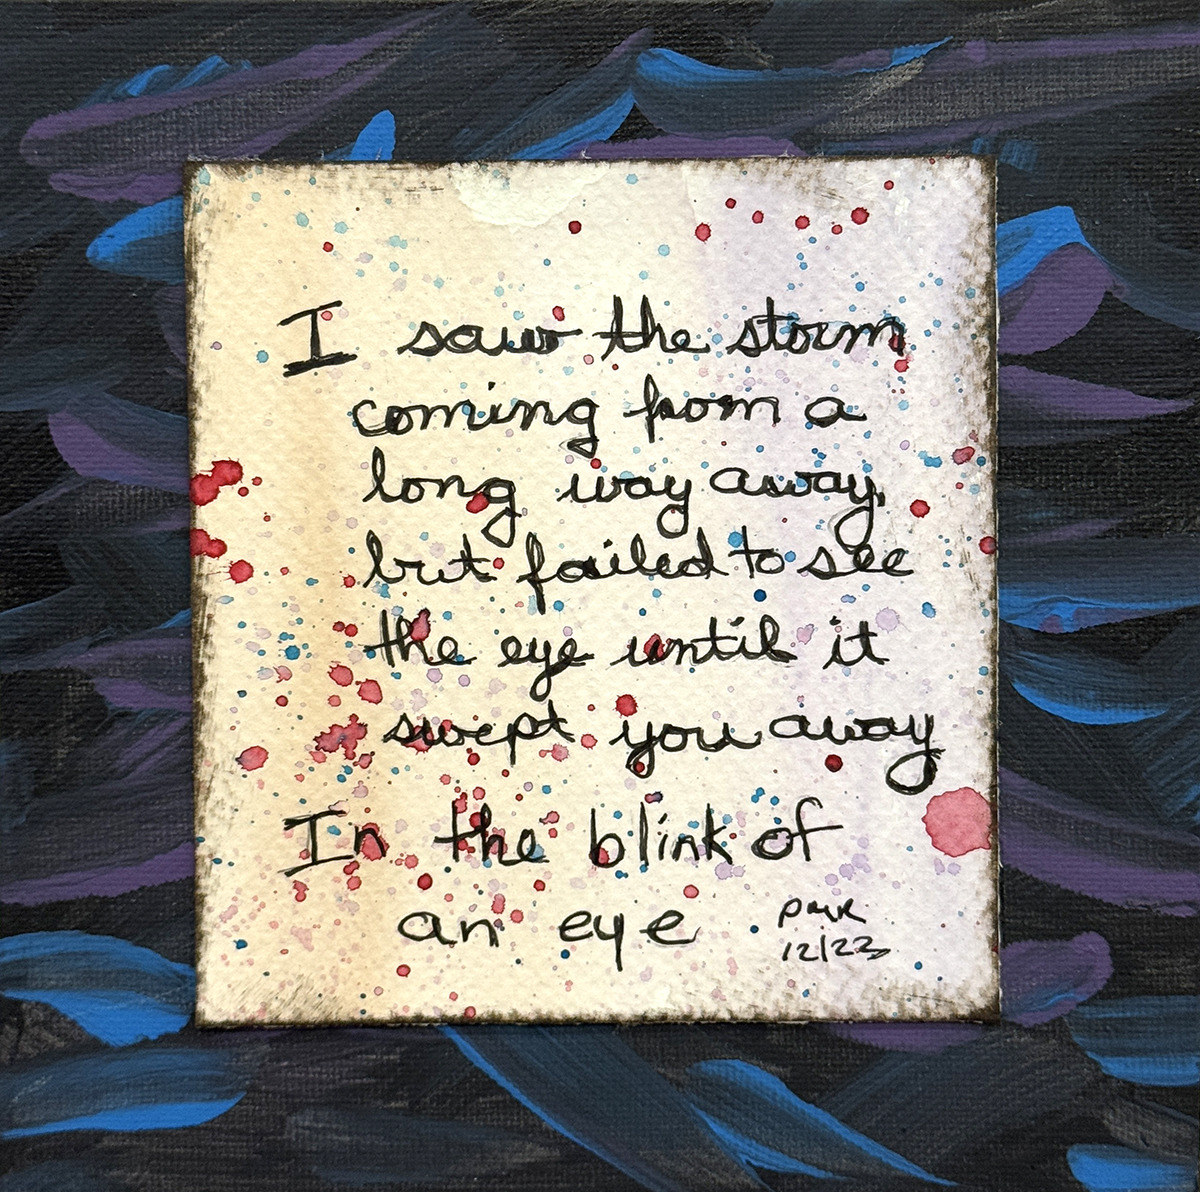 I saw the storm
coming from a
long way away,
but failed to see
the eye until it
swept you away
In the blink of
an eye
PMR
12/23